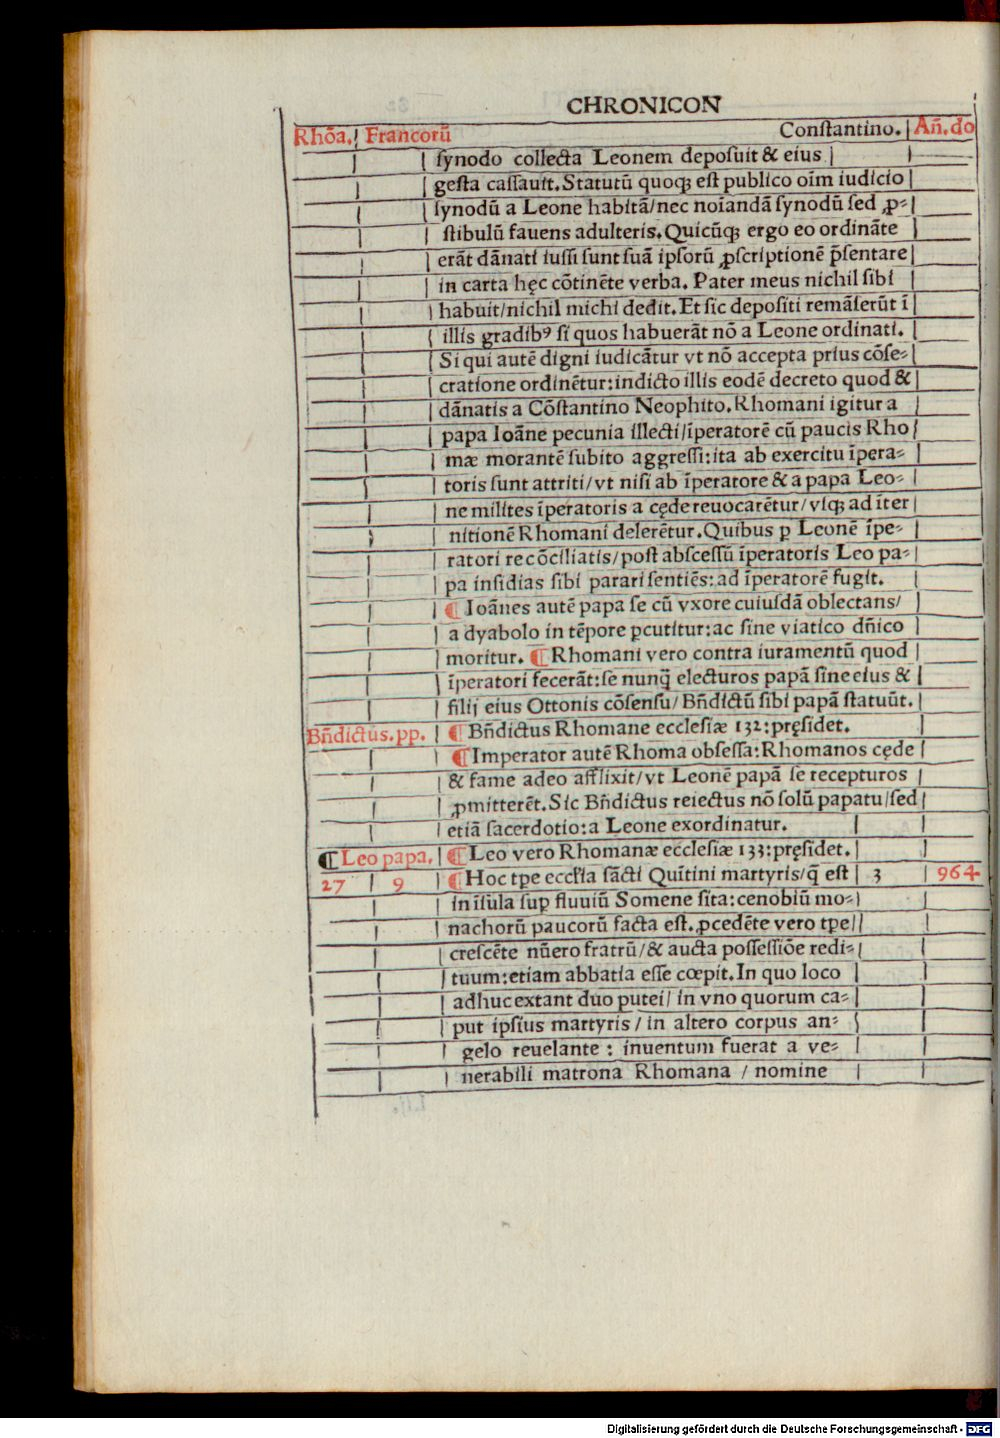 CHRONICON
Rhōa. Francorū Constantino. Añ. do
synodo collecta Leonem deposuit & eius
gesta cassauit. Statutū quoqꝫ est publico oīm iudicio
synodū a Leone habitā/nec noīandā synodū sed ꝓ⸗
stibulū fauens adulteris. Quicūqꝫ ergo eo ordināte
erāt dānati iussi sunt suā ipsorū ꝓscriptionē p̄sentare
in carta hęc cōtinēte verba. Pater meus nichil sibi
habuit/nichil michi dedit. Et sic depositi remāserūt ī
illis gradibꝰ si quos habuerāt nō a Leone ordinati.
Si qui autē digni iudicātur vt nō accepta prius cōse⸗
cratione ordinētur: indicto illis eodē decreto quod &
dānatis a Cōstantino Neophito. Rhomani igitur a
papa Ioāne pecunia illecti/īperatorē cū paucis Rho
mæ morantē subito aggressi: ita ab exercitu īpera⸗
toris sunt attriti/vt nisi ab īperatore & a papa Leo⸗
ne milites īperatoris a cęde reuocarētur/vsqꝫ ad īter
nitionē Rhomani delerētur. Quibus ꝑ Leonē īpe⸗
ratori recōciliatis/post abscessū īperatoris Leo pa⸗
pa insidias sibi parari sentiēs: ad īperatorē fugit.
¶ Ioānes autē papa se cū vxore cuiusdā oblectans/
a dyabolo in tēpore ꝑcutitur: ac sine viatico dñico
moritur. ¶ Rhomani vero contra iuramentū quod
īperatori fecerāt: se nunq̄ electuros papā sine eius &
filij eius Ottonis cōsensu/Bñdictū sibi papā statuūt.
Bñdictus. pp. ¶ Bñdictus Rhomane ecclesiæ 132: pręsidet.
¶ Imperator autē Rhoma obsessa: Rhomanos cęde
& fame adeo afflixit/vt Leonē papā se recepturos
ꝓmitterēt. Sic Bñdictus reiectus nō solū papatu/sed
etiā sacerdotio: a Leone exordinatur.
¶ Leo papa. ¶ Leo vero Rhomanæ ecclesiæ 133: pręsidet.
27 9 ¶ Hoc tꝑe eccl'ia sācti Quītini martyris/q̄ est 3 964
in īsula suꝑ fluuiū Somene sita: cenobiū mo⸗
nachorū paucorū facta est. ꝓcedēte vero tꝑe
crescēte nūero fratrū/& aucta possessiōe redi⸗
tuum: etiam abbatia esse cœpit. In quo loco
adhuc extant duo putei/ in vno quorum ca⸗
put ipsius martyris / in altero corpus an⸗
gelo reuelante : inuentum fuerat a ve⸗
nerabili matrona Rhomana / nomine
Digitalisierung gefördert durch die Deutsche Forschungsgemeinschaft - DFG